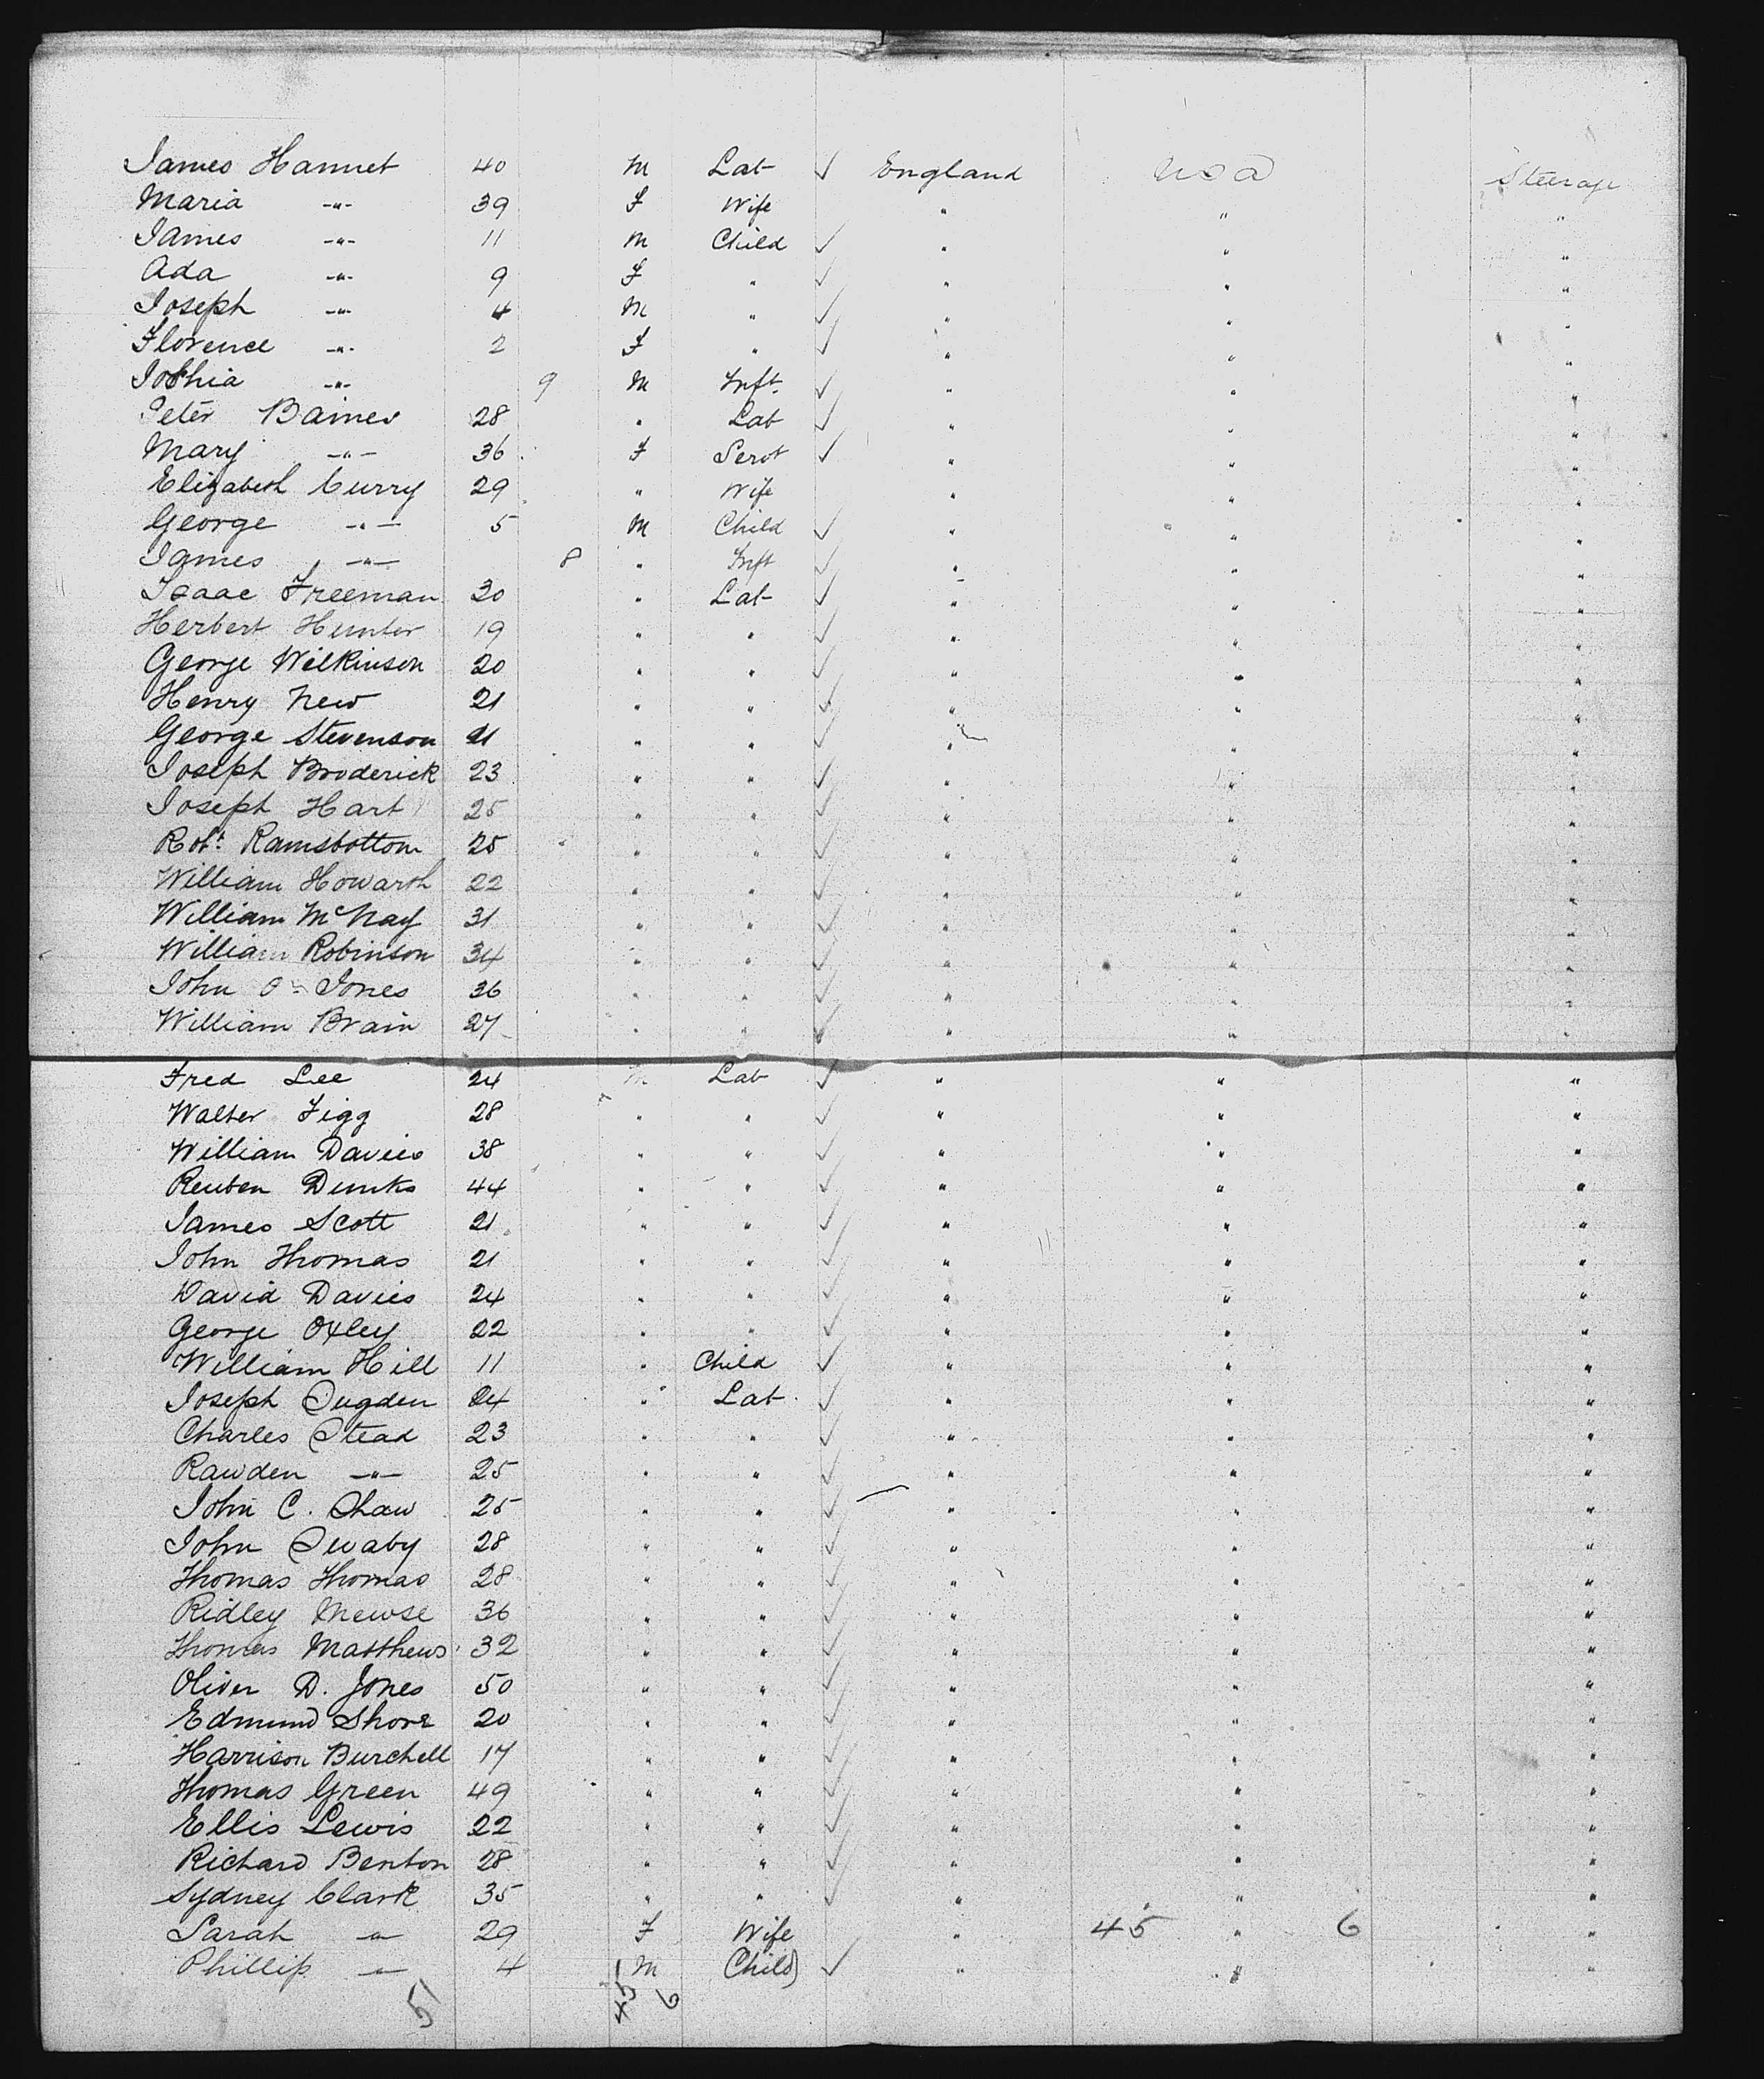 James Hannet 40 M Lab ✓ England USA Steerage
Maria -"- 39 F Wife " " "
James -"- 11 M Child ✓ " " "
Ada -"- 9 F " ✓ " " "
Joseph -"- 4 M " ✓ " " "
Florence -"- 2 F " ✓ " " "
Sophia -"- 9 M Inft. ✓ " " "
Peter Baines 28 " Lab ✓ " " "
Mary -"- 36 F Servt ✓ " " "
Elizabeth Curry 29 " Wife " " "
George -"- 5 M Child ✓ " " "
James -"- 8 " Inft ✓ " " "
Isaac Freeman 30 " Lab ✓ " " "
Herbert Hunter 19 " " ✓ " " "
George Wilkinson 20 " " ✓ " " "
Henry New 21 " " ✓ " " "
George Stevenson 21 " " ✓ " " "
Joseph Broderick 23 " " ✓ " " "
Joseph Hart 25 " " ✓ " " "
Robt. Ramsbottom 25 " " ✓ " " "
William Howarth 22 " " ✓ " " "
William McNay 31 " " ✓ " " "
William Robinson 34 " " ✓ " " "
John Jones 36 " " ✓ " " "
William Brain 27 " " ✓ " " "
Fred Lee 24 M Lab ✓ " " "
Walter Figg 28 " " ✓ " " "
William Davies 38 " " ✓ " " "
Reuben Dunks 44 " " ✓ " " "
James Scott 21 " " ✓ " " "
John Thomas 21 " " ✓ " " "
David Davies 24 " " ✓ " " "
George Oxley 22 " " ✓ " " "
William Hill 11 " Child ✓ " " "
Joseph Sugden 24 " Lab ✓ " " "
Charles Stead 23 " " ✓ " " "
Rawden -"- 25 " " ✓ " " "
John C. Shaw 25 " " ✓ " " "
John Swaby 28 " " ✓ " " "
Thomas Thomas 28 " " ✓ " " "
Ridley Mewse 36 " " ✓ " " "
Thomas Matthews 32 " " ✓ " " "
Oliver D. Jones 50 " " ✓ " " "
Edmund Shore 20 " " ✓ " " "
Harrison Burchell 17 " " ✓ " " "
Thomas Green 49 " " ✓ " " "
Ellis Lewis 22 " " ✓ " " "
Richard Benton 28 " " ✓ " " "
Sydney Clark 35 " " ✓ " " "
Sarah -"- 29 F Wife " 45 " 6 "
Phillip -"- 4 M Child ✓ " " "
51 45 6